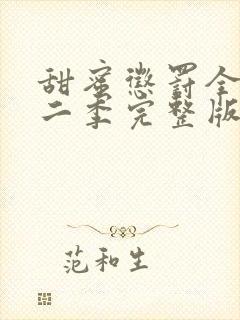 甜蜜懲罰全
二季完整版
范和生